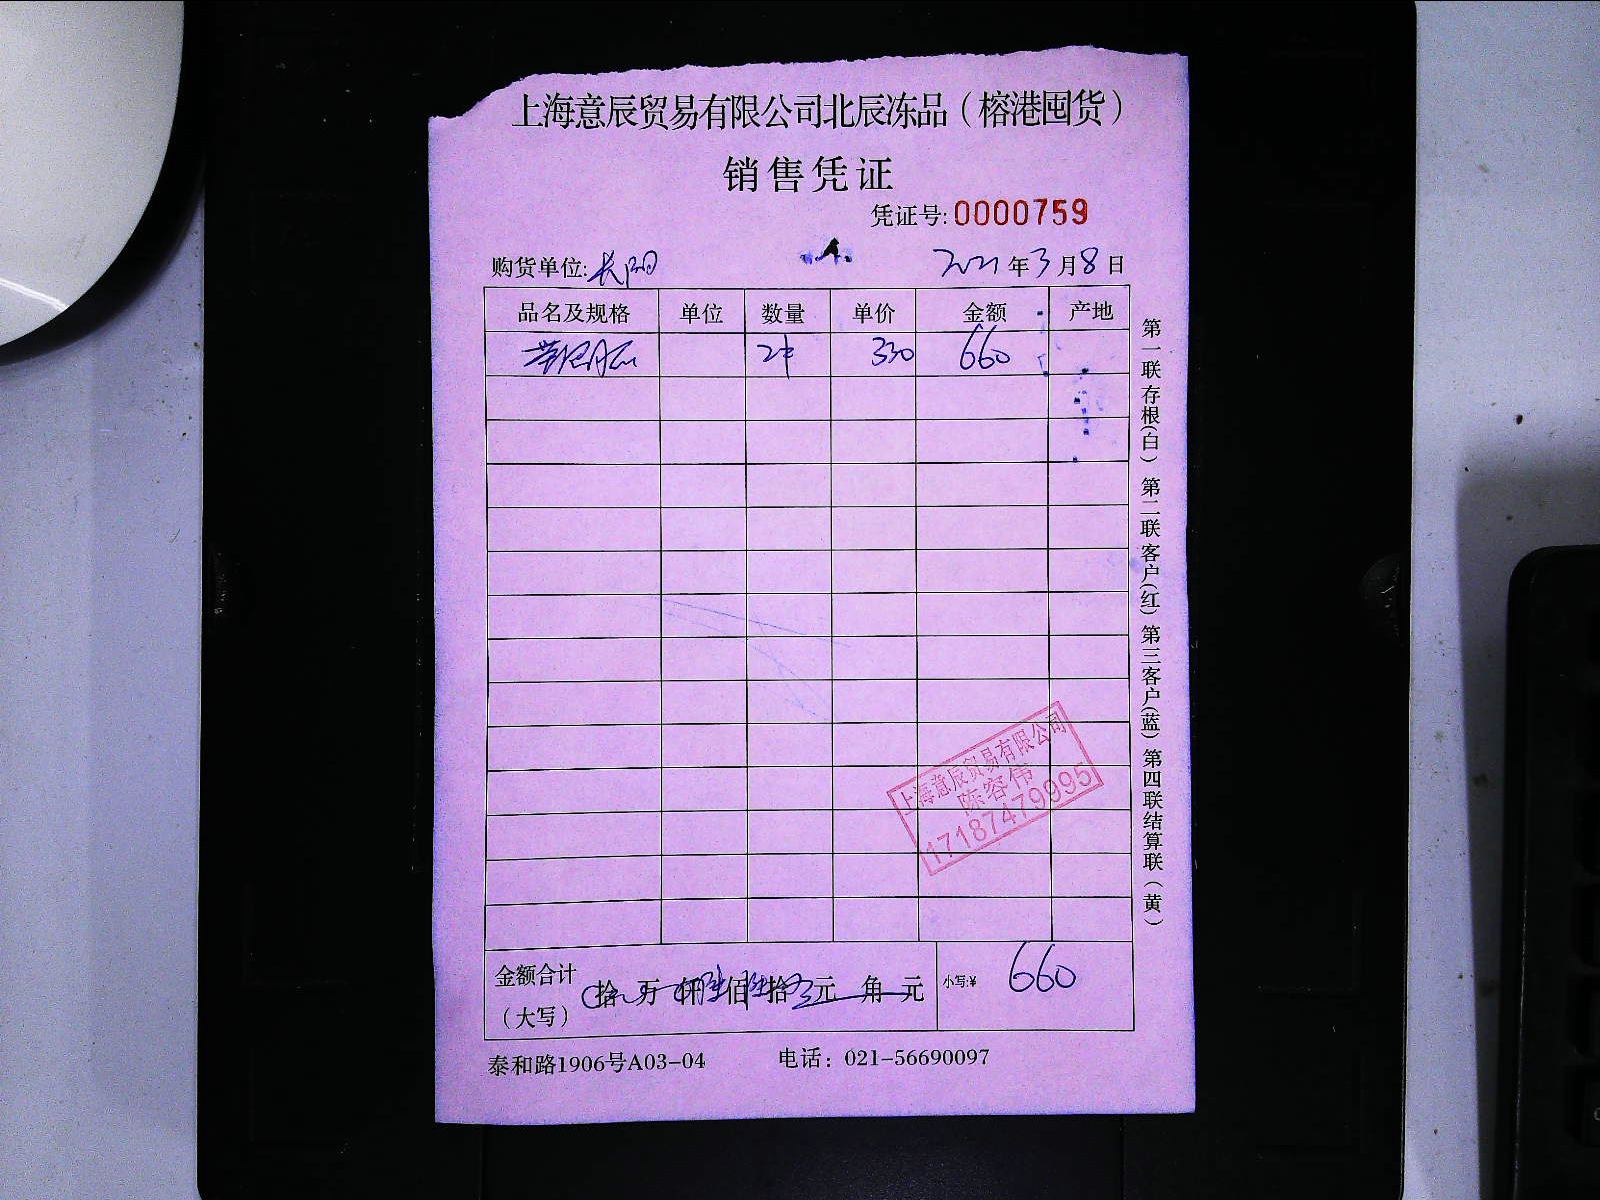 上海意辰贸易有限公司北辰冻品（榕港囤货）
销售凭证
凭证号:0000759
购货单位:长阳 2021年3月8日
品名及规格 单位 数量 单价 金额 产地
2件 330 660
第一联存根(白) 第二联客户(红) 第三客户(蓝) 第四联结算联(黄)
上海意辰贸易有限公司
陈容伟
17187479995
金额合计
（大写） 拾 万 仟陆佰陆拾 元 角 元 小写:¥ 660
泰和路1906号A03-04 电话：021-56690097